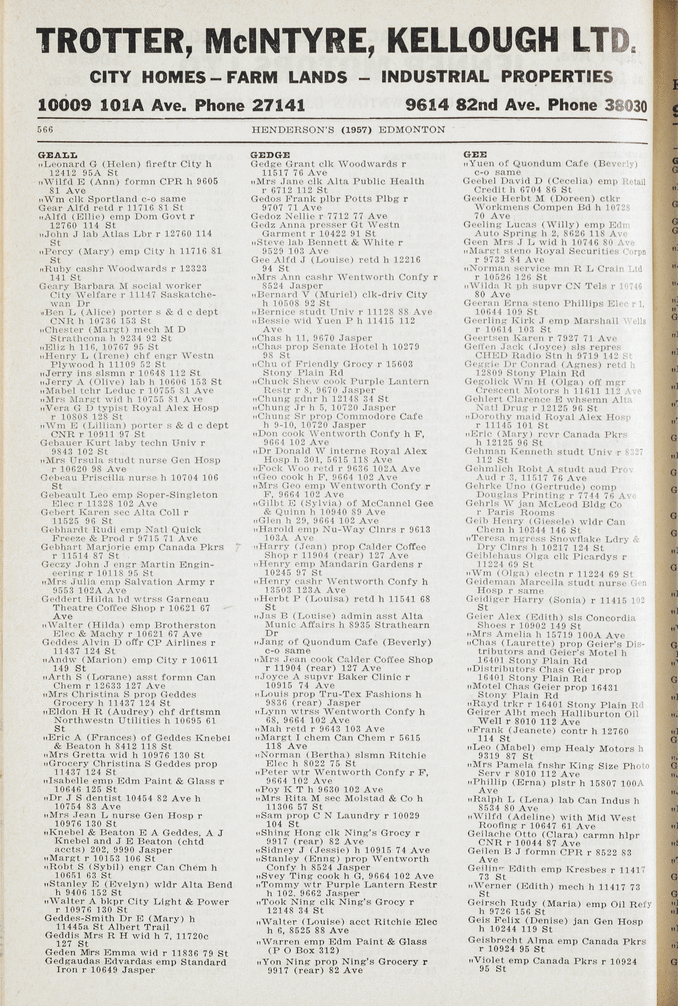 TROTTER, McINTYRE, KELLOUGH LTD.
CITY HOMES – FARM LANDS – INDUSTRIAL PROPERTIES
10009 101A Ave. Phone 27141 9614 82nd Ave. Phone 38030
566 HENDERSON'S (1957) EDMONTON
GEALL
"Leonard G (Helen) fireftr City h
12412 95A St
"Wilfd E (Ann) formn CPR h 9605
81 Ave
"Wm clk Sportland c-o same
Gear Alfd retd r 11716 81 St
"Alfd (Ellie) emp Dom Govt r
12760 114 St
"John J lab Atlas Lbr r 12760 114
St
"Percy (Mary) emp City h 11716 81
St
"Ruby cashr Woodwards r 12323
141 St
Geary Barbara M social worker
City Welfare r 11147 Saskatche-
wan Dr
"Ben L (Alice) porter s & d c dept
CNR h 10736 153 St
"Chester (Margt) mech M D
Strathcona h 9234 92 St
"Eliz h 116, 10767 95 St
"Henry L (Irene) chf engr Westn
Plywood h 11109 52 St
"Jerry ins slsmn r 10648 112 St
"Jerry A (Olive) lab h 10606 153 St
"Mabel tchr Leduc r 10755 81 Ave
"Mrs Margt wid h 10755 81 Ave
"Vera G D typist Royal Alex Hosp
r 10808 128 St
"Wm E (Lillian) porter s & d c dept
CNR r 10911 97 St
Gebauer Kurt laby techn Univ r
9843 102 St
"Mrs Ursula studt nurse Gen Hosp
r 10620 98 Ave
Gebeau Priscilla nurse h 10704 106
St
Gebeault Leo emp Soper-Singleton
Elec r 11328 102 Ave
Gebert Karen sec Alta Coll r
11525 96 St
Gebhardt Rudi emp Natl Quick
Freeze & Prod r 9715 71 Ave
Gebhart Marjorie emp Canada Pkrs
r 11514 87 St
Geczy John J engr Martin Engin-
eering r 10118 95 St
"Mrs Julia emp Salvation Army r
9553 102A Ave
Geddert Hilda hd wtrss Garneau
Theatre Coffee Shop r 10621 67
Ave
"Walter (Hilda) emp Brotherston
Elec & Machy r 10621 67 Ave
Geddes Alvin D offr CP Airlines r
11437 124 St
"Andw (Marion) emp City r 10611
149 St
"Arth S (Lorane) asst formn Can
Chem r 12633 127 Ave
"Mrs Christina S prop Geddes
Grocery h 11437 124 St
"Eldon H R (Audrey) chf drftsmn
Northwestn Utilities h 10695 61
St
"Eric A (Frances) of Geddes Knebel
& Beaton h 8412 118 St
"Mrs Gretta wid h 10976 130 St
"Grocery Christina S Geddes prop
11437 124 St
"Isabelle emp Edm Paint & Glass r
10646 125 St
"Dr J S dentist 10454 82 Ave h
10754 83 Ave
"Mrs Jean L nurse Gen Hosp r
10976 130 St
"Knebel & Beaton E A Geddes, A J
Knebel and J E Beaton (chtd
accts) 202, 9990 Jasper
"Margt r 10153 106 St
"Robt S (Sybil) engr Can Chem h
10651 63 St
"Stanley E (Evelyn) wldr Alta Bend
h 9406 152 St
"Walter A bkpr City Light & Power
r 10976 130 St
Geddes-Smith Dr E (Mary) h
11445a St Albert Trail
Geddis Mrs R H wid h 7, 11720c
127 St
Geden Mrs Emma wid r 11836 79 St
Gedgaudas Edvardas emp Standard
Iron r 10649 Jasper
GEDGE
Gedge Grant clk Woodwards r
11517 76 Ave
"Mrs Jane clk Alta Public Health
r 6712 112 St
Gedos Frank plbr Potts Plbg r
9707 71 Ave
Gedoz Nellie r 7712 77 Ave
Gedz Anna presser Gt Westn
Garment r 10422 91 St
"Steve lab Bennett & White r
9529 103 Ave
Gee Alfd J (Louise) retd h 12216
94 St
"Mrs Ann cashr Wentworth Confy r
8524 Jasper
"Bernard V (Muriel) clk-driv City
h 10508 92 St
"Bernice studt Univ r 11128 88 Ave
"Bessie wid Yuen P h 11415 112
Ave
"Chas h 11, 9670 Jasper
"Chas prop Senate Hotel h 10279
98 St
"Chu of Friendly Grocy r 15603
Stony Plain Rd
"Chuck Shew cook Purple Lantern
Restr r 8, 9670 Jasper
"Chung gdnr h 12148 34 St
"Chung Jr h 5, 10720 Jasper
"Chung Sr prop Commodore Cafe
h 9-10, 10720 Jasper
"Don cook Wentworth Confy h F,
9664 102 Ave
"Dr Donald W interne Royal Alex
Hosp h 301, 5615 118 Ave
"Fock Woo retd r 9636 102A Ave
"Geo cook h F, 9664 102 Ave
"Mrs Geo emp Wentworth Confy r
F, 9664 102 Ave
"Gilbt E (Sylvia) of McCannel Gee
& Quinn h 10940 89 Ave
"Glen h 29, 9664 102 Ave
"Harold emp Nu-Way Clnrs r 9613
103A Ave
"Harry (Jean) prop Calder Coffee
Shop r 11904 (rear) 127 Ave
"Henry emp Mandarin Gardens r
10245 97 St
"Henry cashr Wentworth Confy h
13503 123A Ave
"Herbt P (Louisa) retd h 11541 68
St
"Jas B (Louise) admin asst Alta
Munic Affairs h 8935 Strathearn
Dr
"Jang of Quondum Cafe (Beverly)
c-o same
"Mrs Jean cook Calder Coffee Shop
r 11904 (rear) 127 Ave
"Joyce A supvr Baker Clinic r
10915 74 Ave
"Louis prop Tru-Tex Fashions h
9836 (rear) Jasper
"Lynn wtrss Wentworth Confy h
68, 9664 102 Ave
"Mah retd r 9643 103 Ave
"Margt I chem Can Chem r 5615
118 Ave
"Norman (Bertha) slsmn Ritchie
Elec h 8022 75 St
"Peter wtr Wentworth Confy r F,
9664 102 Ave
"Poy K T h 9630 102 Ave
"Mrs Rita M sec Molstad & Co h
11306 57 St
"Sam prop C N Laundry r 10029
104 St
"Shing Hong clk Ning's Grocy r
9917 (rear) 82 Ave
"Sidney J (Jessie) h 10915 74 Ave
"Stanley (Enng) prop Wentworth
Confy h 8524 Jasper
"Svey Ting cook h G, 9664 102 Ave
"Tommy wtr Purple Lantern Restr
h 102, 9662 Jasper
"Took Ning clk Ning's Grocy r
12148 34 St
"Walter (Louise) acct Ritchie Elec
h 6, 8525 88 Ave
"Warren emp Edm Paint & Glass
(P O Box 312)
"Yon Ning prop Ning's Grocery r
9917 (rear) 82 Ave
GEE
"Yuen of Quondum Cafe (Beverly)
c-o same
Geebel David D (Cecelia) emp Retail
Credit h 6704 86 St
Geekie Herbt M (Doreen) ctkr
Workmens Compen Bd h 10728
70 Ave
Geeling Lucas (Willy) emp Edm
Auto Spring h 2, 8626 118 Ave
Geen Mrs J L wid h 10746 80 Ave
"Margt steno Royal Securities Corpn
r 9732 84 Ave
"Norman service mn R L Crain Ltd
r 10526 126 St
"Wilda R ph supvr CN Tels r 10746
80 Ave
Geeran Erna steno Phillips Elec r 1,
10644 109 St
Geerling Kirk J emp Marshall Wells
r 10614 103 St
Geertsen Karen r 7927 71 Ave
Geffen Jack (Joyce) sls repres
CHED Radio Stn h 9719 142 St
Geggie Dr Conrad (Agnes) retd h
12809 Stony Plain Rd
Gegolick Wm H (Olga) off mgr
Crescent Motors h 11611 112 Ave
Gehlert Clarence E whsemn Alta
Natl Drug r 12125 96 St
"Dorothy maid Royal Alex Hosp
r 11145 101 St
"Eric (Mary) rcvr Canada Pkrs
h 12125 96 St
Gehman Kenneth studt Univ r 8327
112 St
Gehmlich Robt A studt aud Prov
Aud r 3, 11517 76 Ave
Gehrke Uno (Gertrude) comp
Douglas Printing r 7744 76 Ave
Gehrls W jan McLeod Bldg Co
r Paris Rooms
Geib Henry (Giesele) wldr Can
Chem h 10344 146 St
"Teresa mgress Snowflake Ldry &
Dry Clnrs h 10217 124 St
Geiblehaus Olga clk Picardys r
11224 69 St
"Wm (Olga) electn r 11224 69 St
Geideman Marcella studt nurse Gen
Hosp r same
Geidiger Harry (Sonia) r 11415 102
St
Geier Alex (Edith) sls Concordia
Shoes r 10902 149 St
"Mrs Amelia h 15719 100A Ave
"Chas (Laurette) prop Geier's Dis-
tributors and Geier's Motel h
16401 Stony Plain Rd
"Distributors Chas Geier prop
16401 Stony Plain Rd
"Motel Chas Geier prop 16431
Stony Plain Rd
"Rayd trkr r 16401 Stony Plain Rd
Geizer Albt mech Halliburton Oil
Well r 8010 112 Ave
"Frank (Jeanete) contr h 12760
114 St
"Leo (Mabel) emp Healy Motors h
9319 87 St
"Mrs Pamela fnshr King Size Photo
Serv r 8010 112 Ave
"Phillip (Erna) plstr h 15807 100A
Ave
"Ralph L (Lena) lab Can Indus h
8534 80 Ave
"Wilfd (Adeline) with Mid West
Roofing r 10647 61 Ave
Geilache Otto (Clara) carmn hlpr
CNR r 10044 87 Ave
Geilen B J formn CPR r 8522 83
Ave
Geiling Edith emp Kresbes r 11417
73 St
"Werner (Edith) mech h 11417 73
St
Geirsch Rudy (Maria) emp Oil Refy
h 9726 156 St
Geis Felix (Denise) jan Gen Hosp
h 10244 119 St
Geisbrecht Alma emp Canada Pkrs
r 10924 95 St
"Violet emp Canada Pkrs r 10924
95 St